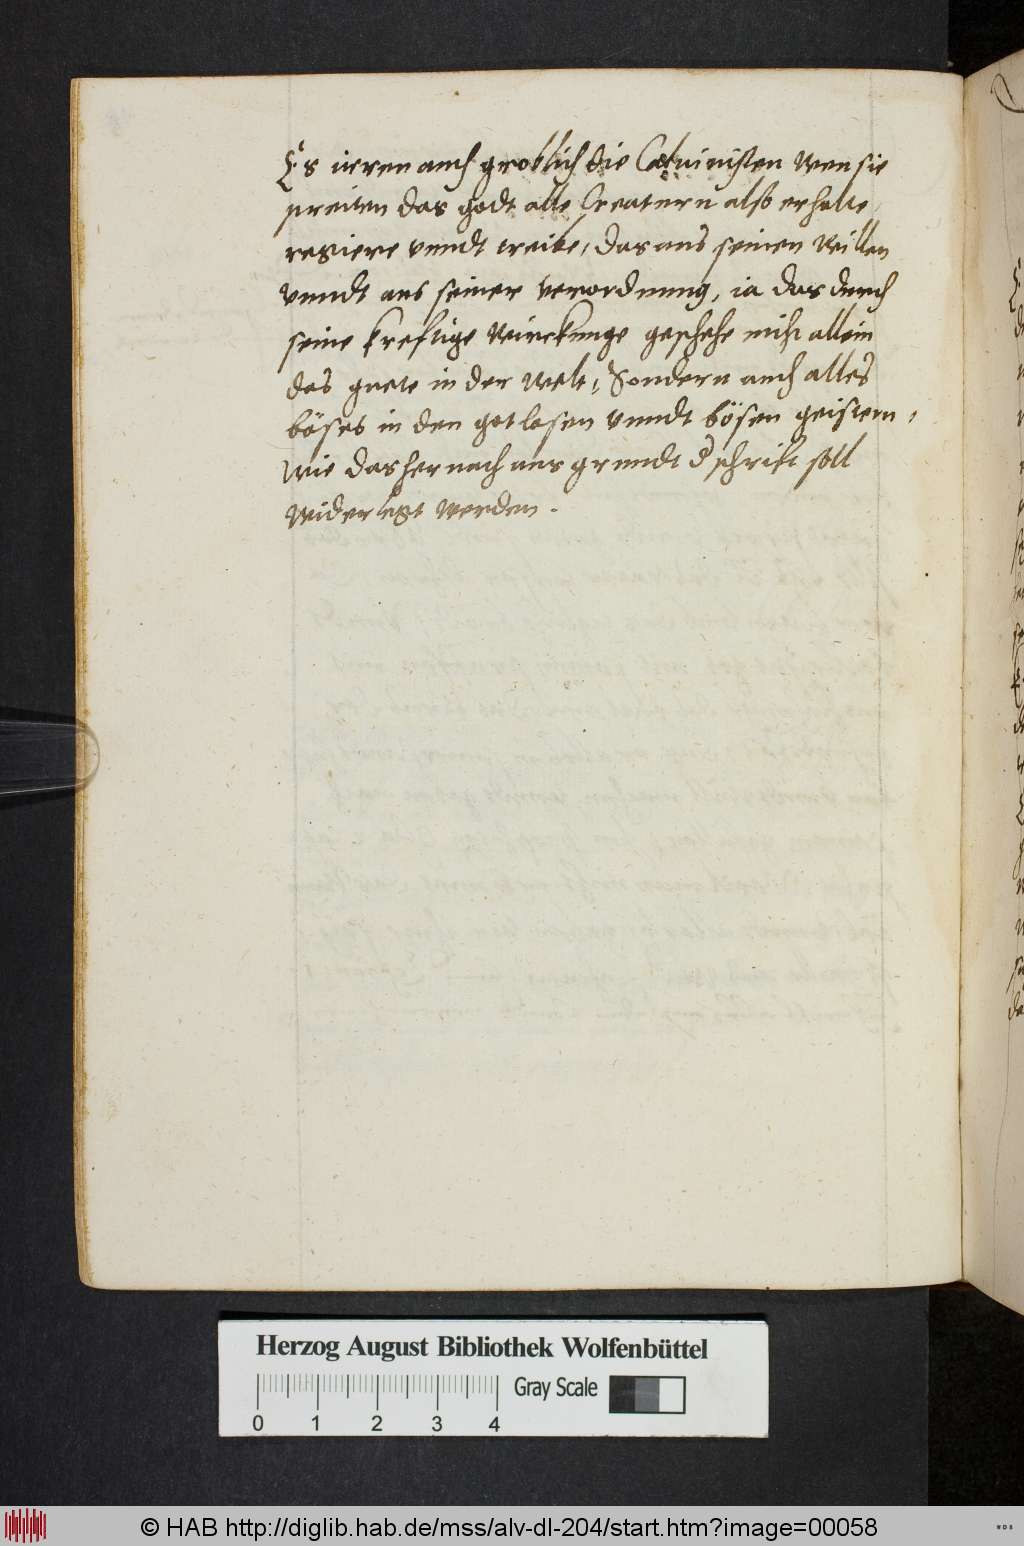 Es irren auch groblich die Caluinisten wen sie
streiten das godt alle Creaturn also erhalte,
regiere vnndt treibe, das aus seinen willen
vnndt aus seiner verordnung, ia das durch
seine kreftige wirckunge geschehe nicht allein
das guete in der welt, Sondern auch alles
böses in den gotlosen vnndt bösen geistern,
wie das hernach aus grundt d schrift soll
widerlegt werden.
Herzog August Bibliothek Wolfenbüttel
Gray Scale
0 1 2 3 4
© HAB http://diglib.hab.de/mss/alv-dl-204/start.htm?image=00058